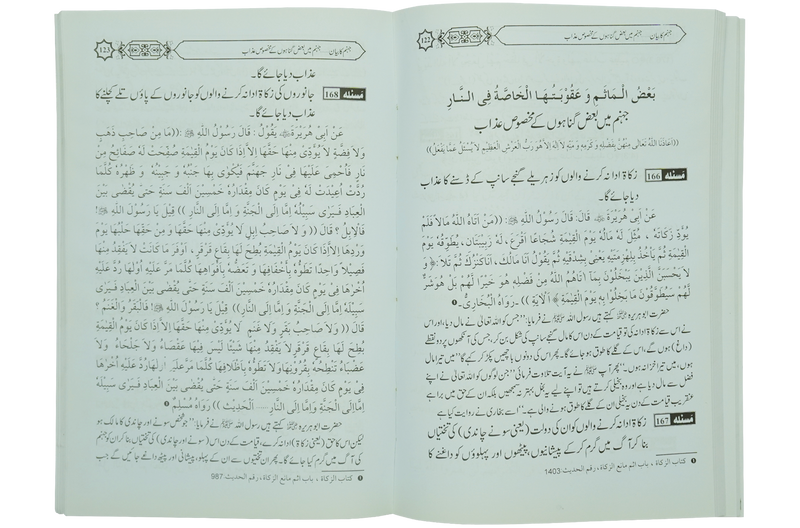 جہنم کا بیان.... جہنم میں بعض گناہوں کے مخصوص عذاب
122
بَعْضُ الْمَآثِمِ وَ عَقُوْبَتُهَا الْخَاصَّةُ فِى النَّارِ
جہنم میں بعض گناہوں کے مخصوص عذاب
((اَعَاذَنَا اللّٰهُ تَعَالٰى مِنْهَا بِفَضْلِهِ وَ كَرَمِهِ وَ مَنِّهِ لاَ اِلٰهَ اِلاَّ هُوَ رَبُّ الْعَرْشِ الْعَظِيْمِ لاَ يُسْئَلُ عَمَّا يَفْعَلُ))
مسئلہ 166 زکاۃ ادا نہ کرنے والوں کو زہریلے گنجے سانپ کے ڈسنے کا عذاب
دیا جائے گا۔
عَنْ اَبِىْ هُرَيْرَةَ ﷺ قَالَ: قَالَ رَسُوْلُ اللّٰهِ ﷺ: ((مَنْ اٰتَاهُ اللّٰهُ مَالاً فَلَمْ
يُؤَدِّ زَكَاتَهُ ، مُثِّلَ لَهُ مَالُهُ يَوْمَ الْقِيٰمَةِ شُجَاعًا اَقْرَعَ ، لَهُ زَبِيْبَتَانِ ، يُطَوَّقُهُ يَوْمَ
الْقِيٰمَةِ ثُمَّ يَاْخُذُ بِلِهْزِمَتَيْهِ يَعْنِى بِشِدْقَيْهِ ثُمَّ يَقُوْلُ اَنَا مَالُكَ ، اَنَا كَنْزُكَ ثُمَّ تَلاَ: ﴿ وَ
لاَ يَحْسَبَنَّ الَّذِيْنَ يَبْخَلُوْنَ بِمَآ اٰتَاهُمُ اللّٰهُ مِنْ فَضْلِهِ هُوَ خَيْرًا لَّهُمْ بَلْ هُوَ شَرٌّ
لَّهُمْ سَيُطَوَّقُوْنَ مَا بَخِلُوْا بِهِ يَوْمَ الْقِيٰمَةِ ﴾ اَلْاٰيَةِ )) . رَوَاهُ الْبُخَارِىُّ ❶
حضرت ابو ہریرہ ﷺ کہتے ہیں رسول اللہ ﷺ نے فرمایا: ”جس کو اللہ تعالیٰ نے مال دیا، اور اس
نے اس سے زکاۃ ادا نہ کی تو قیامت کے دن اس کا مال گنجے سانپ کی شکل بن کر، جس کی آنکھوں پر دو نقطے
(داغ) ہوں گے، اس کے گلے کا طوق ہو جائے گا۔ پھر اس کی دونوں باچھیں پکڑ کر کہے گا ”میں تیرا مال
ہوں، میں تیرا خزانہ ہوں۔“ پھر آپ ﷺ نے یہ آیت تلاوت فرمائی ”جن لوگوں کو اللہ تعالیٰ نے اپنے
فضل سے مال دیا ہے اور وہ بخیلی کرتے ہیں تو اپنے لیے یہ بخل بہتر نہ سمجھیں بلکہ ان کے حق میں برا ہے
عنقریب قیامت کے دن یہ بخیلی ان کے گلے کا طوق ہونے والی ہے۔“ اسے بخاری نے روایت کیا ہے
مسئلہ 167 زکاۃ ادا نہ کرنے والوں کو ان کی دولت (یعنی سونے چاندی) کی تختیاں
بنا کر آگ میں گرم کر کے پیشانیوں، پیٹھوں اور پہلوؤں کو داغنے کا
❶ كتاب الزكاة ، باب اثم مانع الزكاة ، رقم الحديث: 1403
جہنم کا بیان.... جہنم میں بعض گناہوں کے مخصوص عذاب
123
عذاب دیا جائے گا۔
مسئلہ 168 جانوروں کی زکاۃ ادا نہ کرنے والوں کو جانوروں کے پاؤں تلے کچلنے کا
عذاب دیا جائے گا۔
عَنْ اَبِىْ هُرَيْرَةَ ﷺ يَقُوْلُ: قَالَ رَسُوْلُ اللّٰهِ ﷺ: ((مَا مِنْ صَاحِبِ ذَهَبٍ
وَلاَ فِضَّةٍ لاَ يُؤَدِّىْ مِنْهَا حَقَّهَا اِلاَّ اِذَا كَانَ يَوْمُ الْقِيٰمَةِ صُفِّحَتْ لَهُ صَفَائِحُ مِنْ
نَارٍ فَاُحْمِىَ عَلَيْهَا فِىْ نَارِ جَهَنَّمَ فَيُكْوٰى بِهَا جَنْبُهُ وَ جَبِيْنُهُ وَ ظَهْرُهُ كُلَّمَا
رُدَّتْ اُعِيْدَتْ لَهُ فِىْ يَوْمٍ كَانَ مِقْدَارُهُ خَمْسِيْنَ اَلْفَ سَنَةٍ حَتّٰى يُقْضٰى بَيْنَ
الْعِبَادِ فَيَرٰى سَبِيْلَهُ اِمَّا اِلَى الْجَنَّةِ وَ اِمَّا اِلَى النَّارِ )) قِيْلَ يَا رَسُوْلَ اللّٰهِ ﷺ!
فَالْاِبِلُ ؟ قَالَ (( وَ لاَ صَاحِبُ اِبِلٍ لاَ يُؤَدِّىْ مِنْهَا حَقَّهَا وَ مِنْ حَقِّهَا حَلْبُهَا يَوْمَ
وِرْدِهَا اِلاَّ اِذَا كَانَ يَوْمُ الْقِيٰمَةِ بُطِحَ لَهَا بِقَاعٍ قَرْقَرٍ ، اَوْفَرَ مَا كَانَتْ لاَ يَفْقِدُ مِنْهَا
فَصِيْلاً وَاحِدًا تَطَؤُهُ بِاَخْفَافِهَا وَ تَعَضُّهُ بِاَفْوَاهِهَا كُلَّمَا مَرَّ عَلَيْهِ اُوْلاَهَا رُدَّ عَلَيْهِ
اُخْرٰهَا فِىْ يَوْمٍ كَانَ مِقْدَارُهُ خَمْسِيْنَ اَلْفَ سَنَةٍ حَتّٰى يُقْضٰى بَيْنَ الْعِبَادِ فَيَرٰى
سَبِيْلَهُ اِمَّا اِلَى الْجَنَّةِ وَ اِمَّا اِلَى النَّارِ)) قِيْلَ يَا رَسُوْلَ اللّٰهِ ﷺ! فَالْبَقَرُ وَ الْغَنَمُ ؟
قَالَ (( وَلاَ صَاحِبُ بَقَرٍ وَلاَ غَنَمٍ لاَ يُؤَدِّىْ مِنْهَا حَقَّهَا اِلاَّ اِذَا كَانَ يَوْمُ الْقِيٰمَةِ
بُطِحَ لَهَا بِقَاعٍ قَرْقَرٍ لاَ يَفْقِدُ مِنْهَا شَيْئًا لَيْسَ فِيْهَا عَقْصَاءُ وَ لاَ جَلْحَاءُ وَ لاَ
عَضْبَاءُ تَنْطِحُهُ بِقُرُوْنِهَا وَ تَطَؤُهُ بِاَظْلاَفِهَا كُلَّمَا مَرَّ عَلَيْهِ اُوْلاَهَا رُدَّ عَلَيْهِ اُخْرٰهَا
فِىْ يَوْمٍ كَانَ مِقْدَارُهُ خَمْسِيْنَ اَلْفَ سَنَةٍ حَتّٰى يُقْضٰى بَيْنَ الْعِبَادِ فَيَرٰى سَبِيْلَهُ
اِمَّا اِلَى الْجَنَّةِ وَ اِمَّا اِلَى النَّارِ .... اَلْحَدِيْثَ )) رَوَاهُ مُسْلِمٌ ❶
حضرت ابو ہریرہ ﷺ کہتے ہیں رسول اللہ ﷺ نے فرمایا ”جو شخص سونے اور چاندی کا مالک ہو
لیکن اس کا حق (یعنی زکاۃ) ادا نہ کرے، قیامت کے دن اس (سونے اور چاندی) کی تختیاں بنا کر ان کو جہنم
کی آگ میں گرم کیا جائے گا۔ پھر ان تختیوں سے ان کے پہلو، پیشانی اور پیٹھ داغے جائیں گے جب
❶ كتاب الزكاة ، باب اثم مانع الزكاة ، رقم الحديث: 987